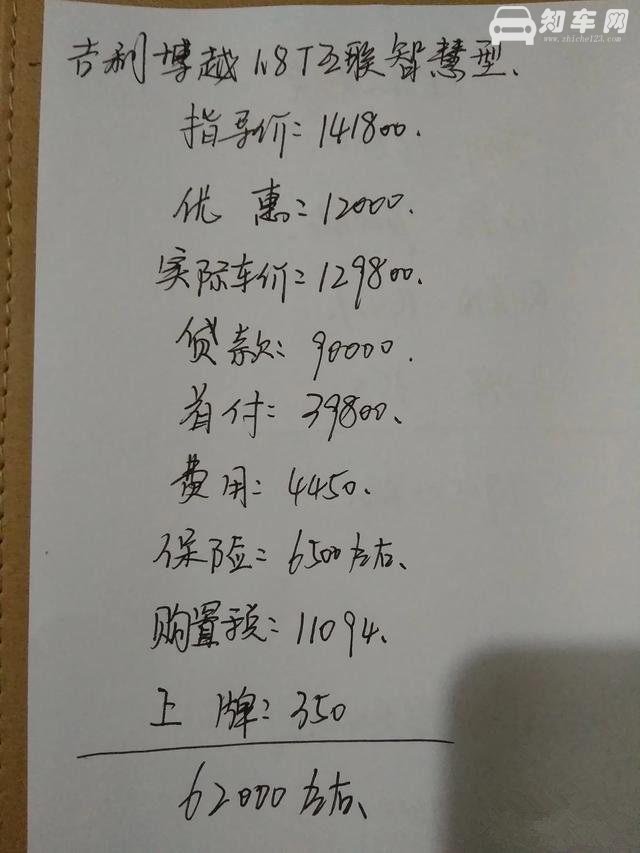 知车网
www.zhiche123.com
吉利博越1.8T互联智慧型、
指导价:141800.
优 惠:12000.
实际车价:129800.
贷款:90000.
首付:39800、
费用:4450.
保险:6500左右、
购置税:11094.
上 牌:350
62000左右、